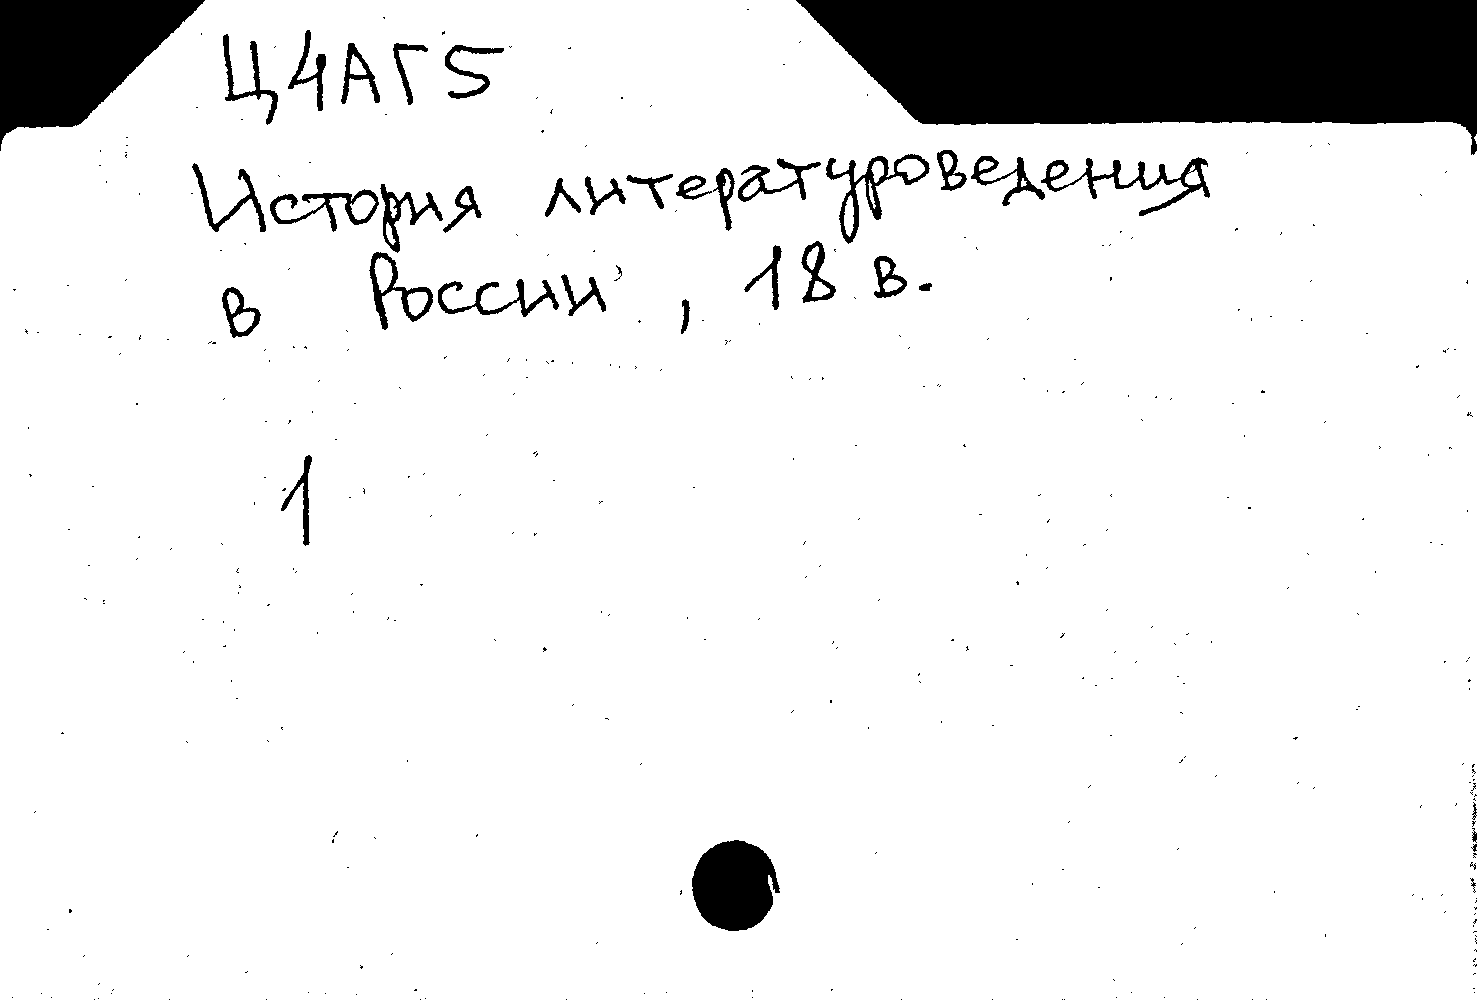 Ц4АГ5
История литературоведения
в России, 18 в.
1